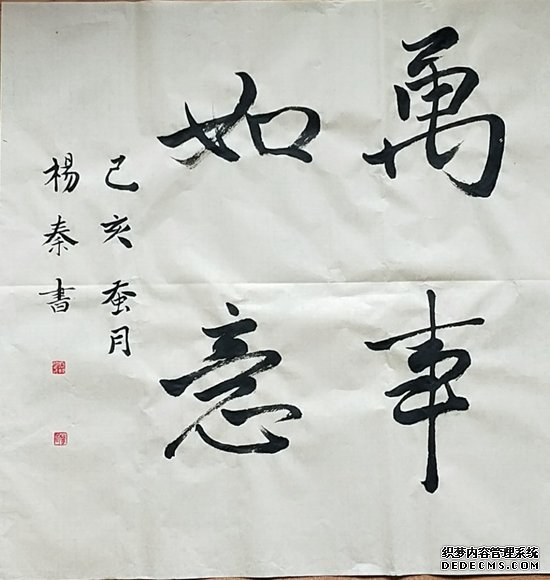 萬事
如意
己亥蚕月
楊秦書
织梦内容管理系统
DEDECMS.COM